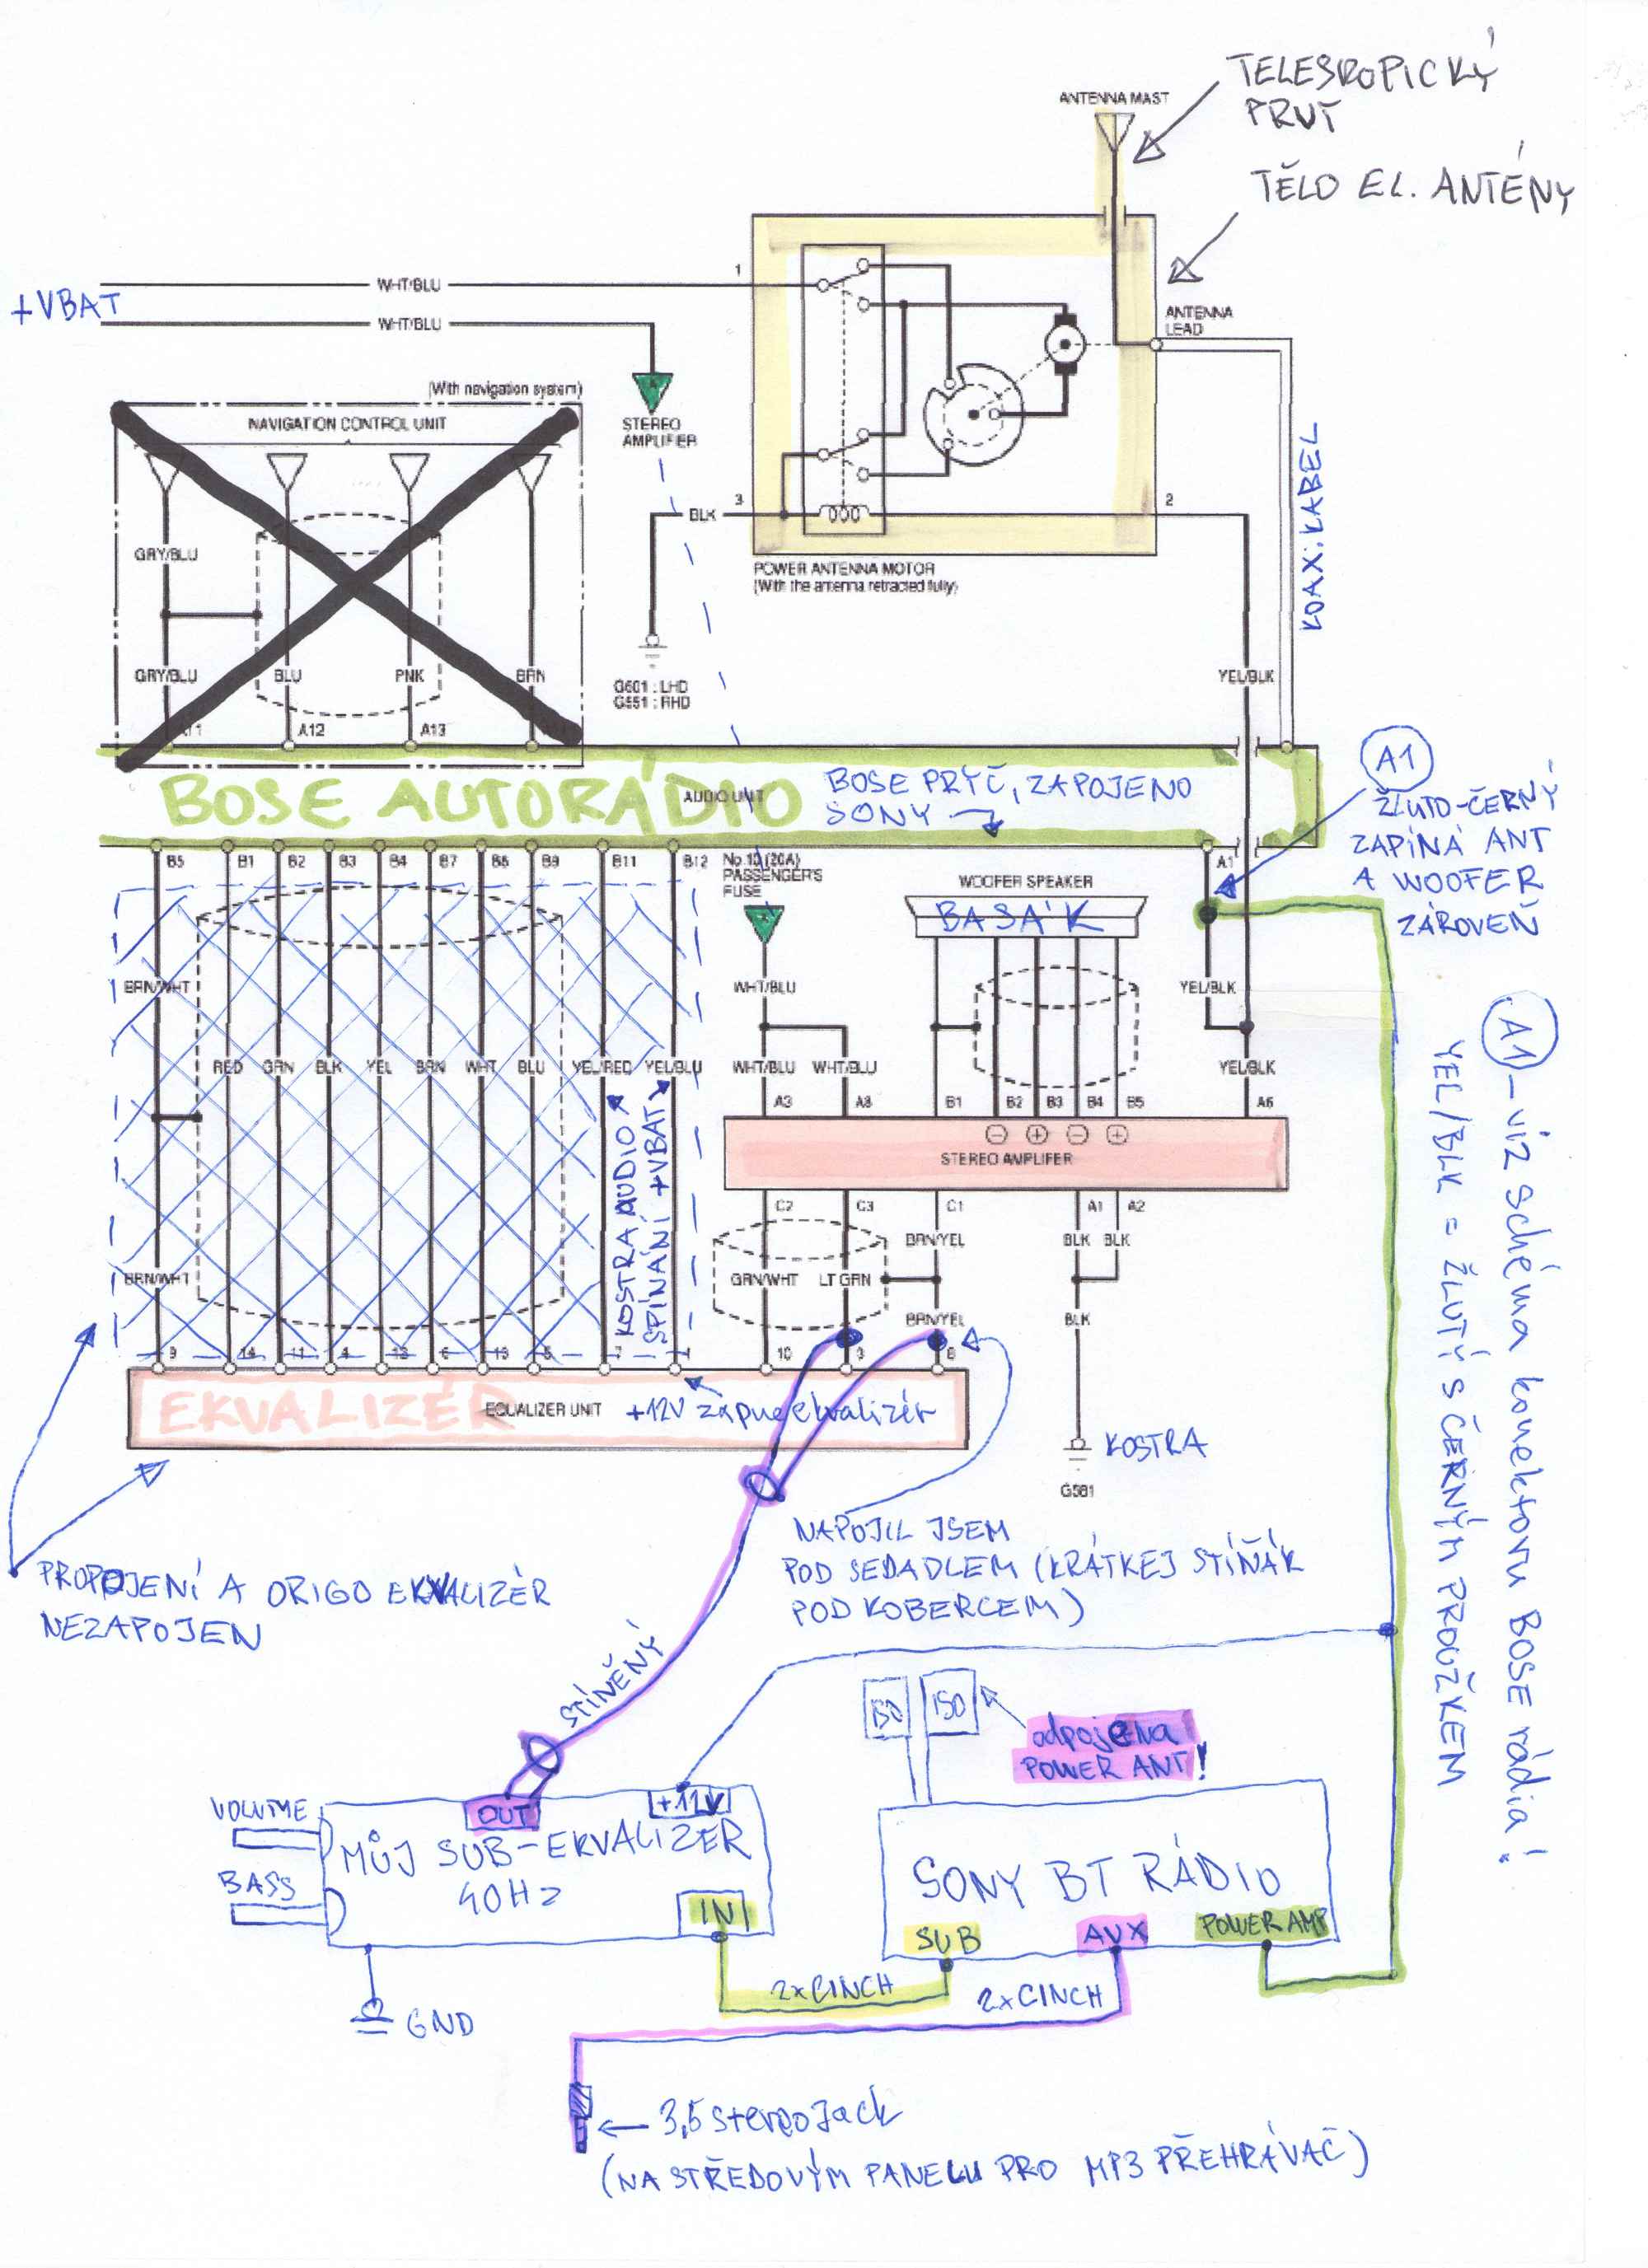 TELESROPICKÝ
PRUT
ANTENNA MAST
TĚLO EL. ANTÉNY
+VBAT
WHT/BLU
1
WHT/BLU
ANTENNA
LEAD
(With navigation system)
NAVIGATION CONTROL UNIT
STEREO
AMPLIFIER
KOAX. KABEL
3
BLK
2
GRY/BLU
POWER ANTENNA MOTOR
(With the antenna retracted fully)
GRY/BLU
BLU
PNK
BRN
G601 : LHD
G551 : RHD
YEL/BLK
A11
A12
A13
A1
BOSE AUTORÁDIO
AUDIO UNIT
BOSE PRYČ, ZAPOJENO
SONY
ŽLUTO-ČERNÝ
ZAPÍNÁ ANT
A WOOFER
ZÁROVEŇ
B5
B1
B2
B3
B4
B7
B8
B9
B11
B12
No.13 (20A)
PASSENGER'S
FUSE
WOOFER SPEAKER
BASÁK
A1
BRN/WHT
WHT/BLU
YEL/BLK
RED
GRN
BLK
YEL
BRN
WHT
BLU
YEL/RED
YEL/BLU
WHT/BLU
WHT/BLU
YEL/BLK
A3
A8
B1
B2
B3
B4
B5
A6
KOSTRA AUDIO
SPÍNÁNÍ +VBAT
⊖ ⊕ ⊖ ⊕
STEREO AMPLIFER
C2
C3
C1
A1
A2
BRN/YEL
BLK
BLK
BRN/WHT
GRN/WHT
LT GRN
BRN/YEL
BLK
9
14
11
4
12
6
13
5
7
1
10
3
8
EKVALIZÉR
EQUALIZER UNIT
+12V zapne ekvalizér
KOSTRA
G581
A1 - viz schéma konektoru BOSE rádia!
YEL/BLK = ŽLUTÝ S ČERNÝM PROUŽKEM
NAPOJIL JSEM
POD SEDADLEM (KRÁTKEJ STÍŇÁK
POD KOBERCEM)
PROPOJENÍ A ORIGO EKVALIZÉR
NEZAPOJEN
STÍNĚNÝ
ISO
ISO
odpojena
POWER ANT!
VOLUME
OUT
+12V
MŮJ SUB-EKVALIZER
40Hz
BASS
IN
SONY BT RÁDIO
SUB
AUX
POWER AMP
2xCINCH
2xCINCH
GND
3,5 stereo Jack
(NA STŘEDOVÝM PANELU PRO MP3 PŘEHRÁVAČ)